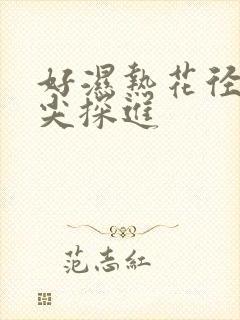 好濕熱花径
尖探進
范志紅